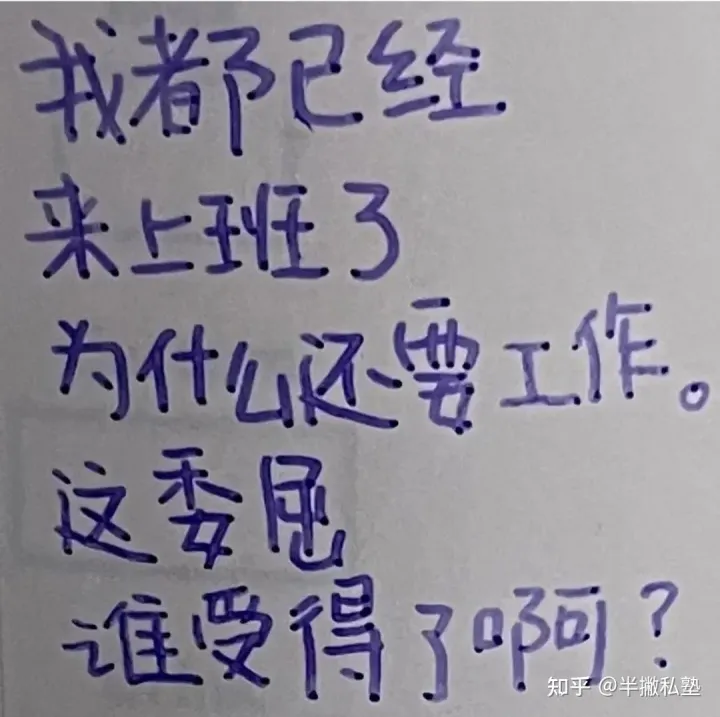 我都已经
来上班了
为什么还要工作。
这委屈
谁受得了啊？
知乎 @半撇私塾